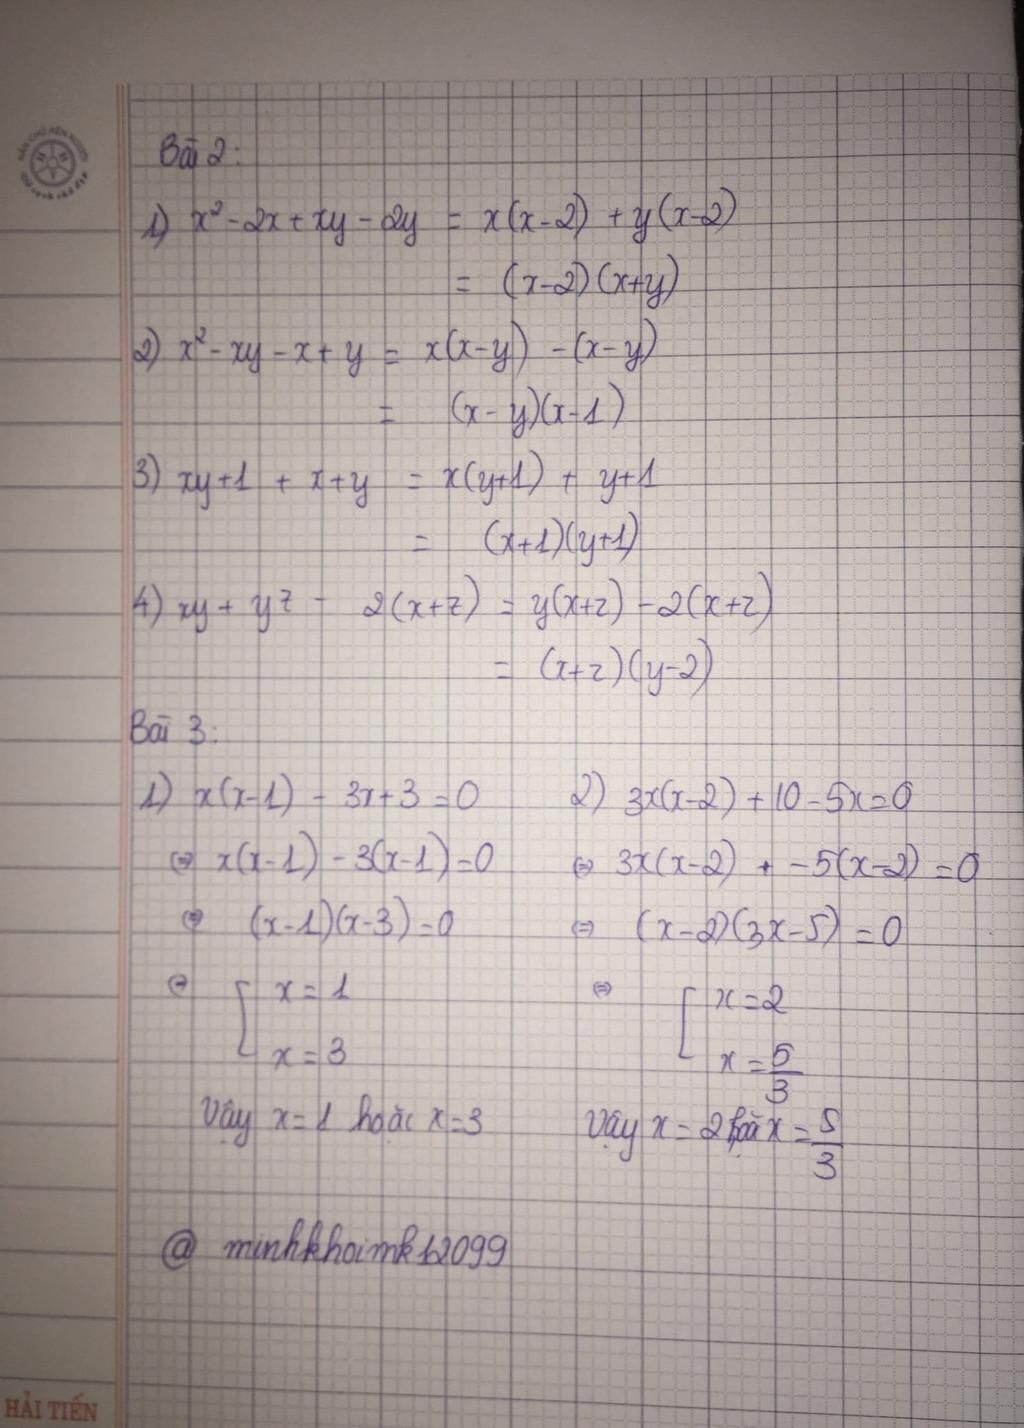 Bài 2:
1) x² - 2x + xy - 2y = x(x-2) + y(x-2)
= (x-2)(x+y)
2) x² - xy - x + y = x(x-y) - (x-y)
= (x-y)(x-1)
3) xy+1 + x+y = x(y+1) + y+1
= (x+1)(y+1)
4) xy + yz - 2(x+z) = y(x+z) - 2(x+z)
= (x+z)(y-2)
Bài 3:
1) x(x-1) - 3x+3 = 0
⇔ x(x-1) - 3(x-1) = 0
⇔ (x-1)(x-3) = 0
⇔ [ x = 1
x = 3
Vậy x = 1 hoặc x = 3
2) 3x(x-2) + 10 - 5x = 0
⇔ 3x(x-2) + -5(x-2) = 0
⇔ (x-2)(3x-5) = 0
⇔ [ x = 2
x = 5/3
Vậy x = 2 hoặc x = 5/3
@ minhkhoimk12099
HẢI TIẾN